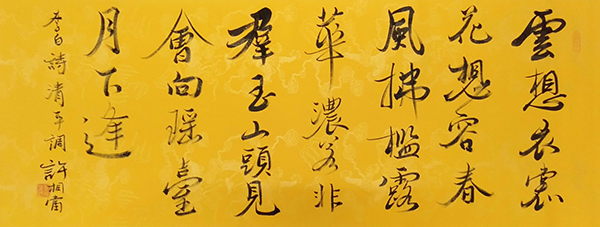 雲想衣裳
花想容春
風拂檻露
華濃若非
群玉山頭見
會向瑤臺
月下逢
李白詩清平調 許